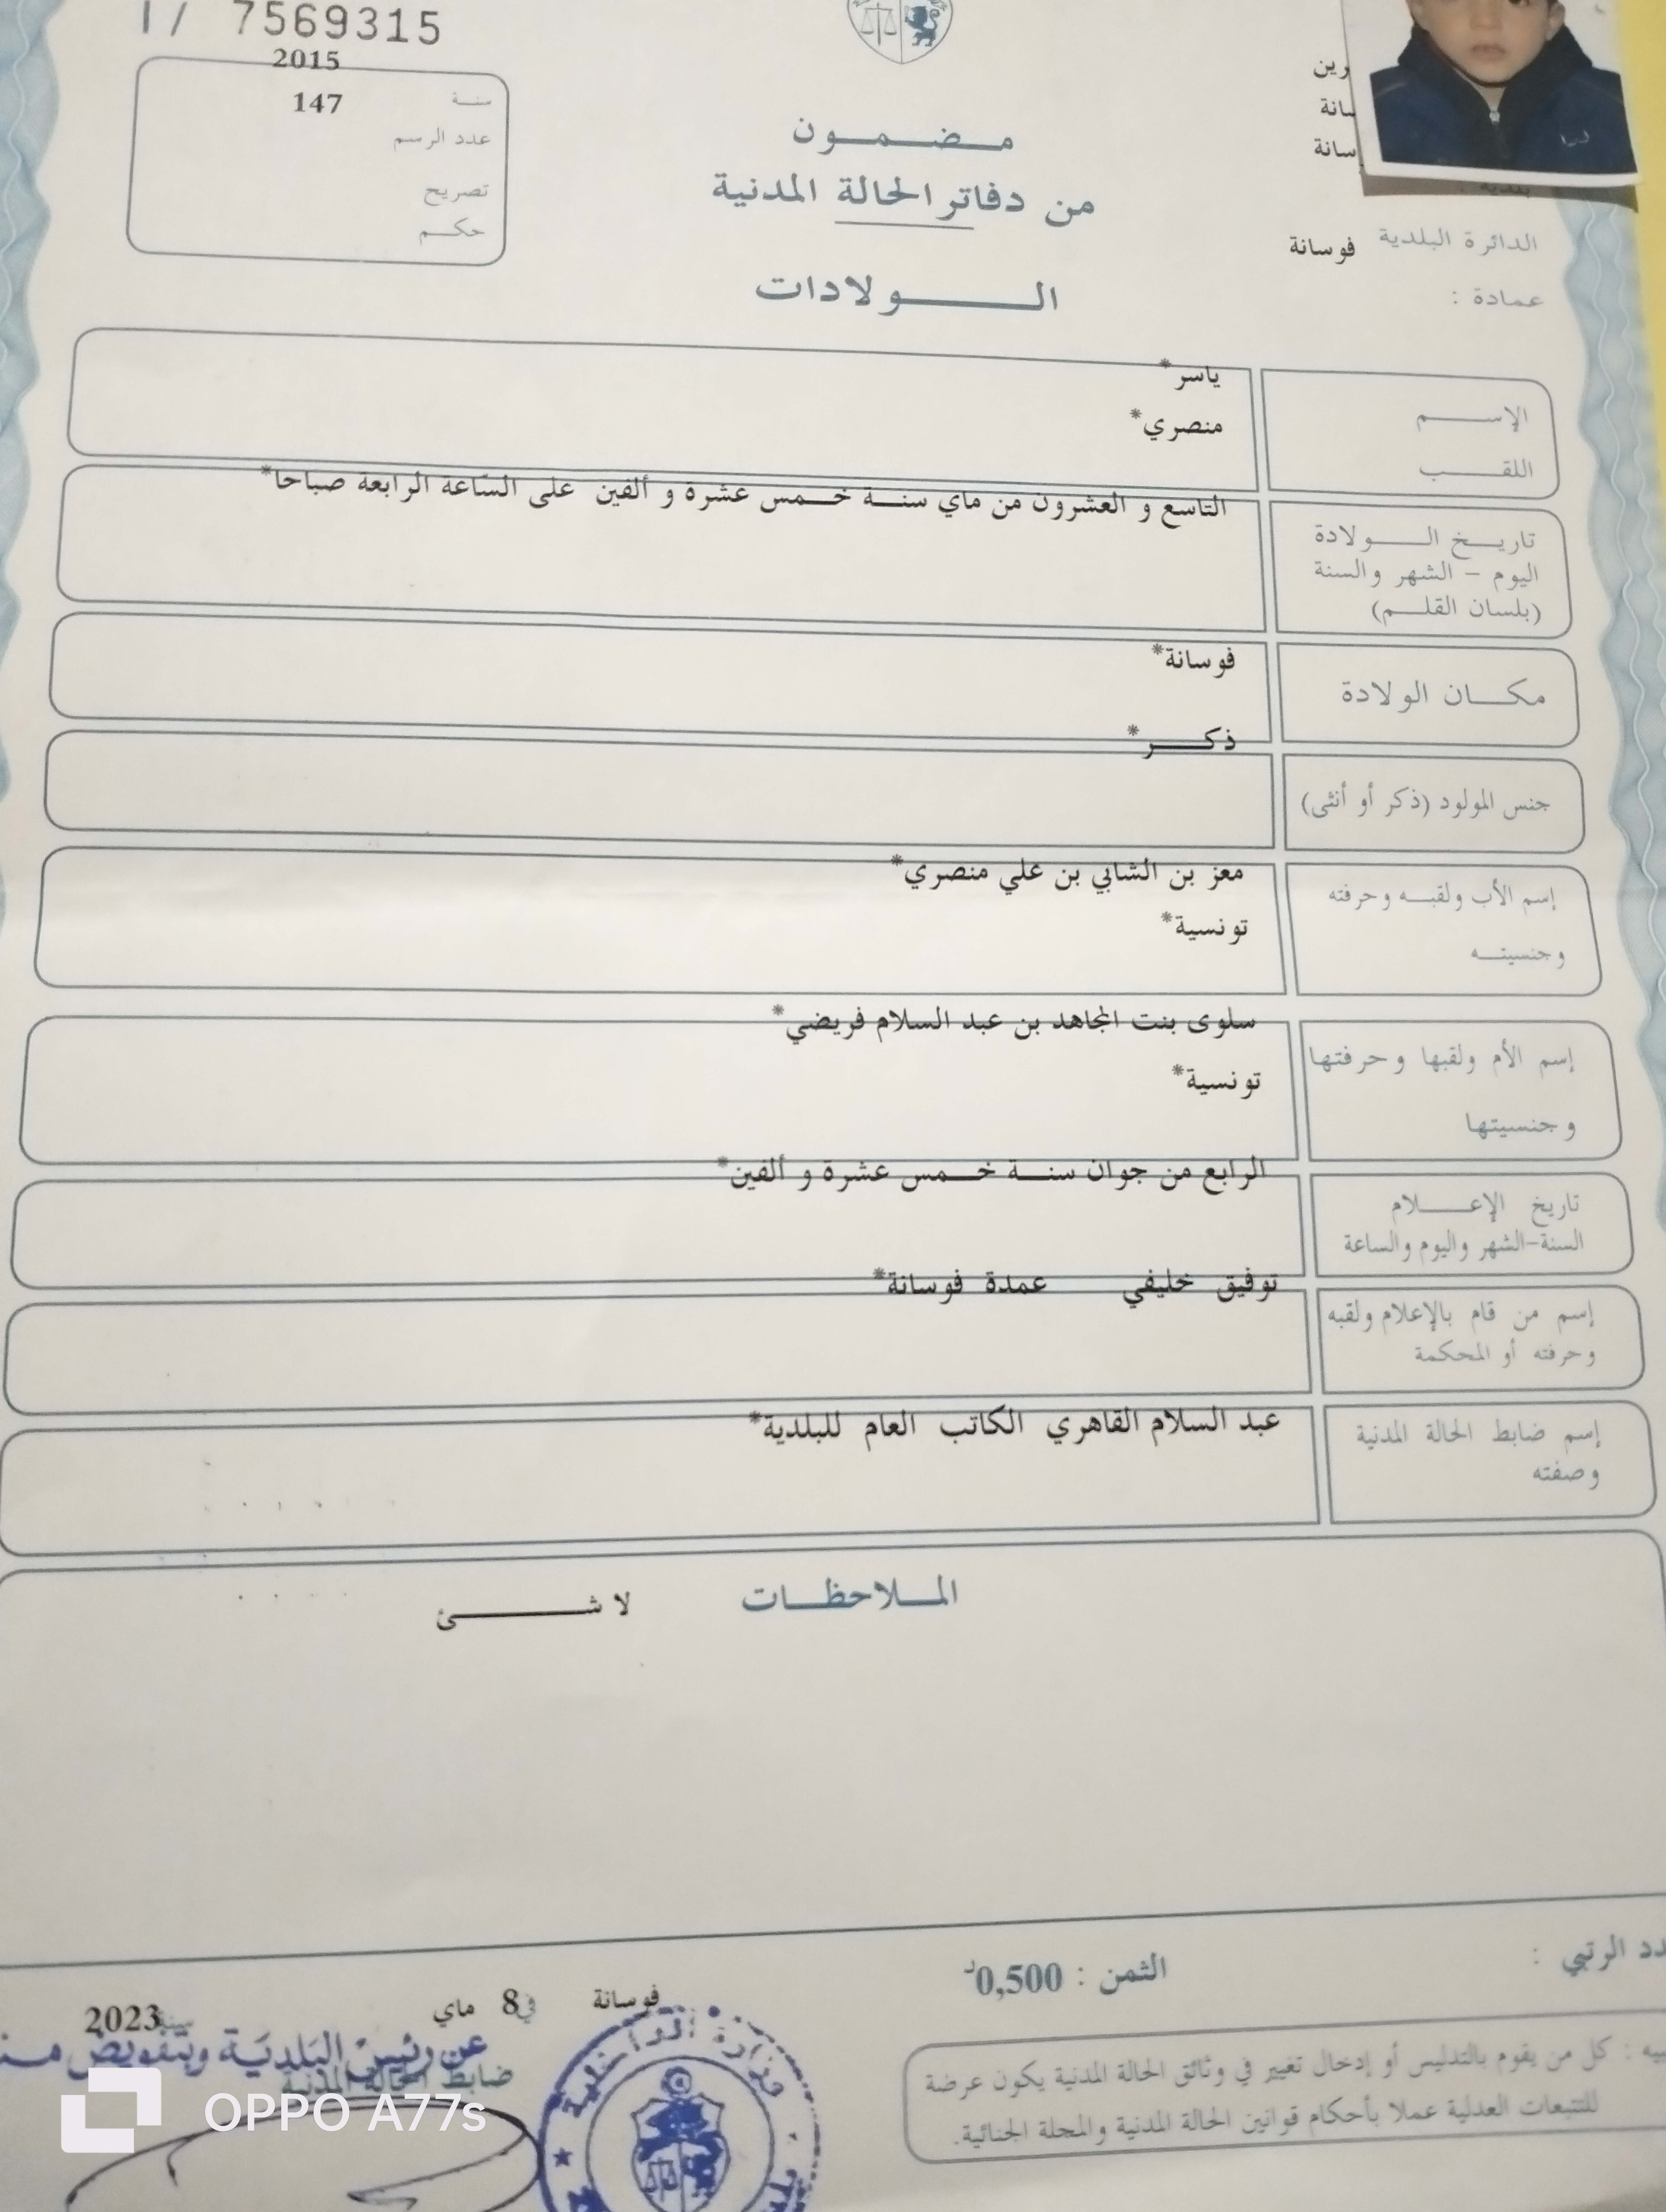 1/ 7569315
2015
سنة 147
عدد الرسم
تصريح
حكم
مضمون
من دفاتر الحالة المدنية
الولادات
رين
سانة
سانة
الدائرة البلدية فوسانة
عمادة :
الإسم ياسر*
اللقب منصري*
تاريخ الولادة التاسع و العشرون من ماي سنة خمس عشرة و ألفين على الساعة الرابعة صباحا*
اليوم - الشهر والسنة
(بلسان القلم)
مكان الولادة فوسانة*
ذكر*
جنس المولود (ذكر أو أنثى)
إسم الأب ولقبه وحرفته معز بن الشابي بن علي منصري*
وجنسيته تونسية*
إسم الأم ولقبها وحرفتها سلوى بنت المجاهد بن عبد السلام فريضي*
وجنسيتها تونسية*
تاريخ الإعلام الرابع من جوان سنة خمس عشرة و ألفين*
السنة-الشهر واليوم والساعة
إسم من قام بالإعلام ولقبه توفيق خليفي عمدة فوسانة*
وحرفته أو المحكمة
إسم ضابط الحالة المدنية عبد السلام القاهري الكاتب العام للبلدية*
وصفته
الملاحظات لا شئ
دد الرتبي :
الثمن : 0,500د
فوسانة في 8 ماي سنة 2023
عن رئيس البلدية وبتفويض منـ
ضابط الحالة المدنية
وزارة الداخلية
بيه : كل من يقوم بالتدليس أو إدخال تغيير في وثائق الحالة المدنية يكون عرضة
للتتبعات العدلية عملا بأحكام قوانين الحالة المدنية والمجلة الجنائية.
OPPO A77s